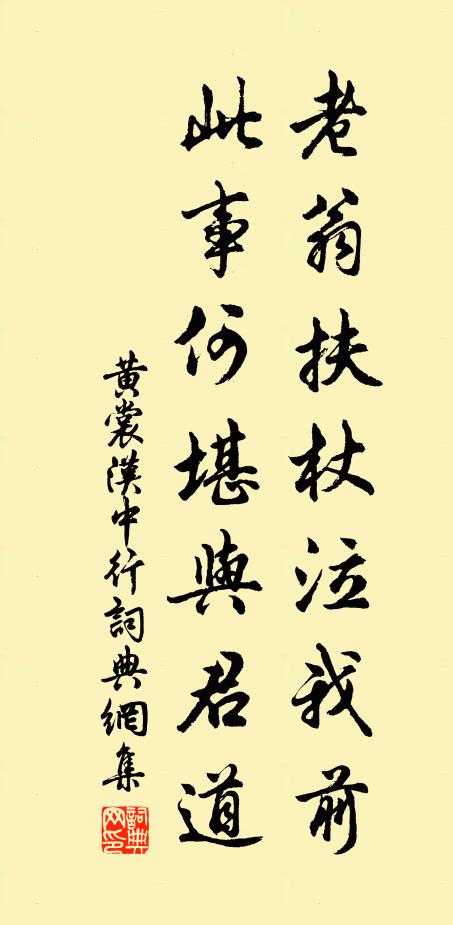 老翁扶杖泣我前
此事何堪與君道
黄裳漢中行詞典網集
詞典網印